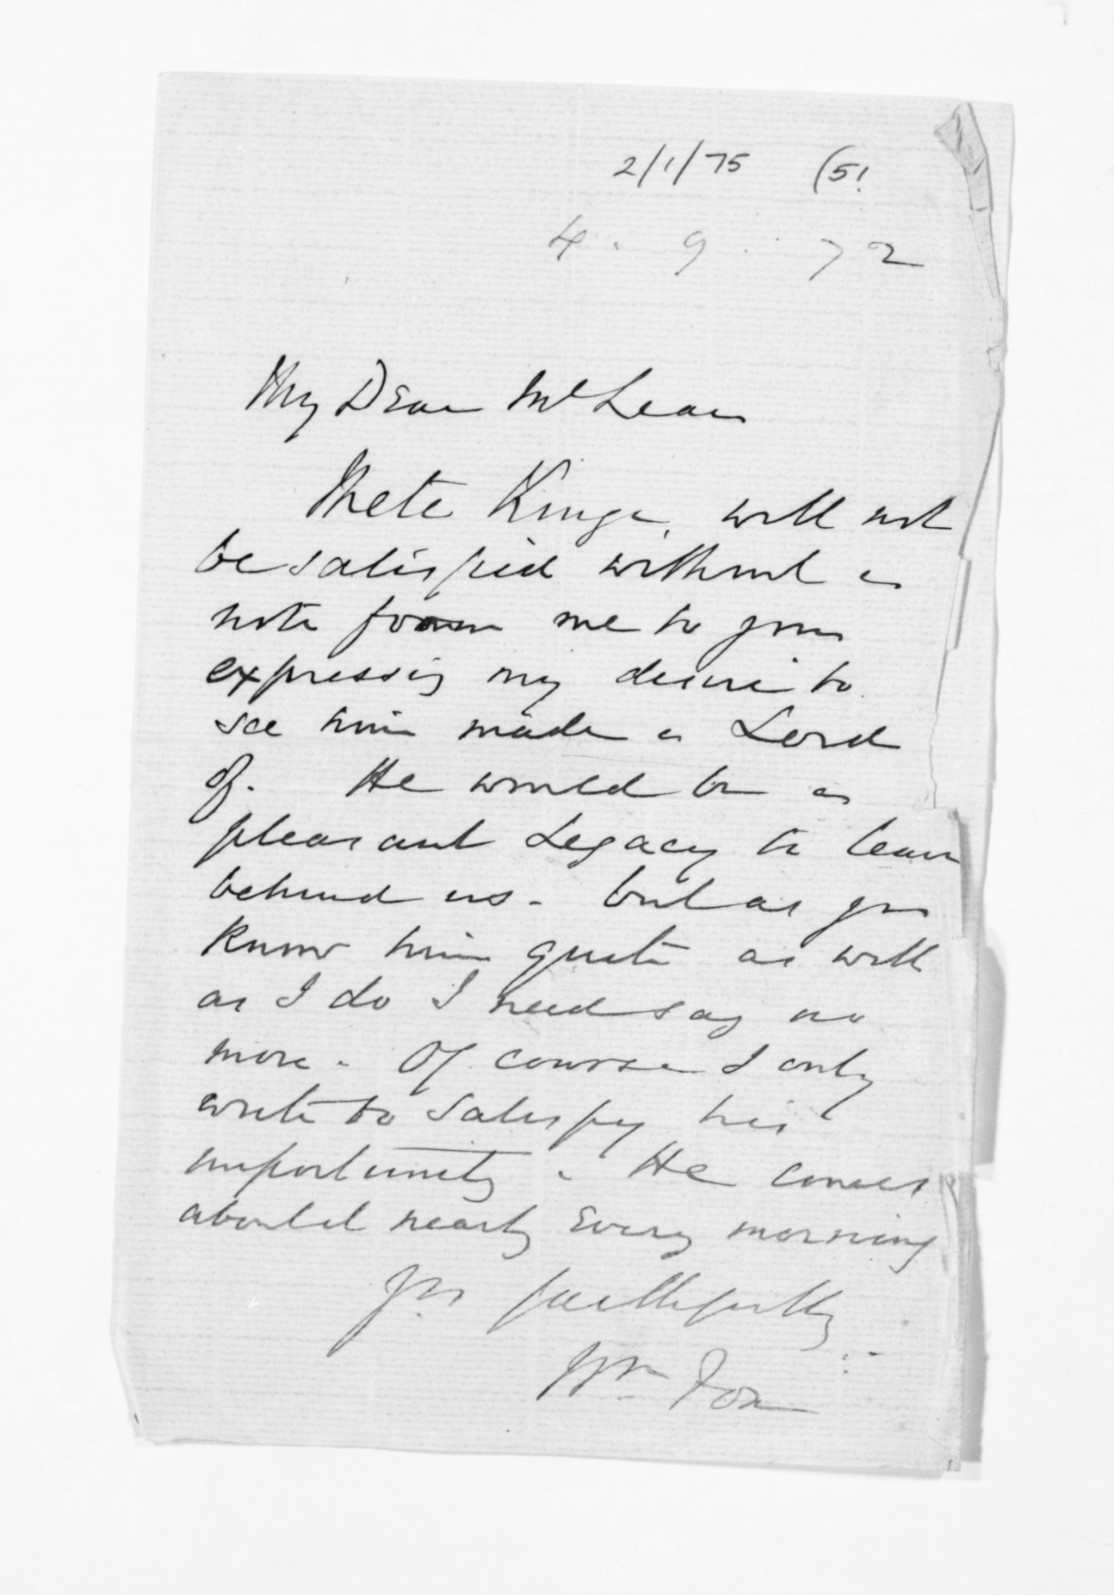 2/1/75 (5!
4. 9. 72
My Dear McLean
Mete Kinge, will not
be satisfied without a
note from me to you
expressing my desire to
see him made a Lord
of. He would be a
pleasant Legacy to leave
behind us - but as you
know him quite as well
as I do I need say no
more. Of course I only
write to satisfy his
importunity. He comes
about it nearly Every morning
Yrs faithfully
Wm Fox